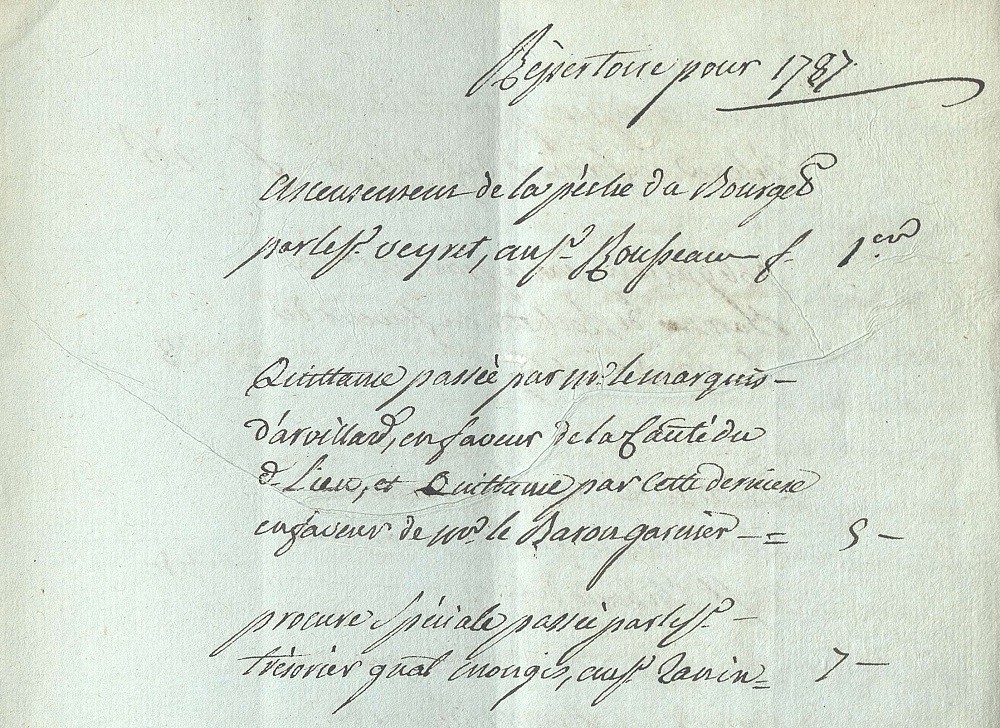 Répertoire pour 1787
Ascensement de la pêche du Bourget
par le Sr. Veyret, au Sr. Rousseau f. 1er
Quittance passée par Mr. le marquis
d'arvillard, en faveur de la Cauté du
d. Lieu, et Quittance par Cette dernière
en faveur de Mr. le Baron garnier = 5
procure Spéciale passée par le Sr.
trésorier gnal mongis, au Sr. =  7